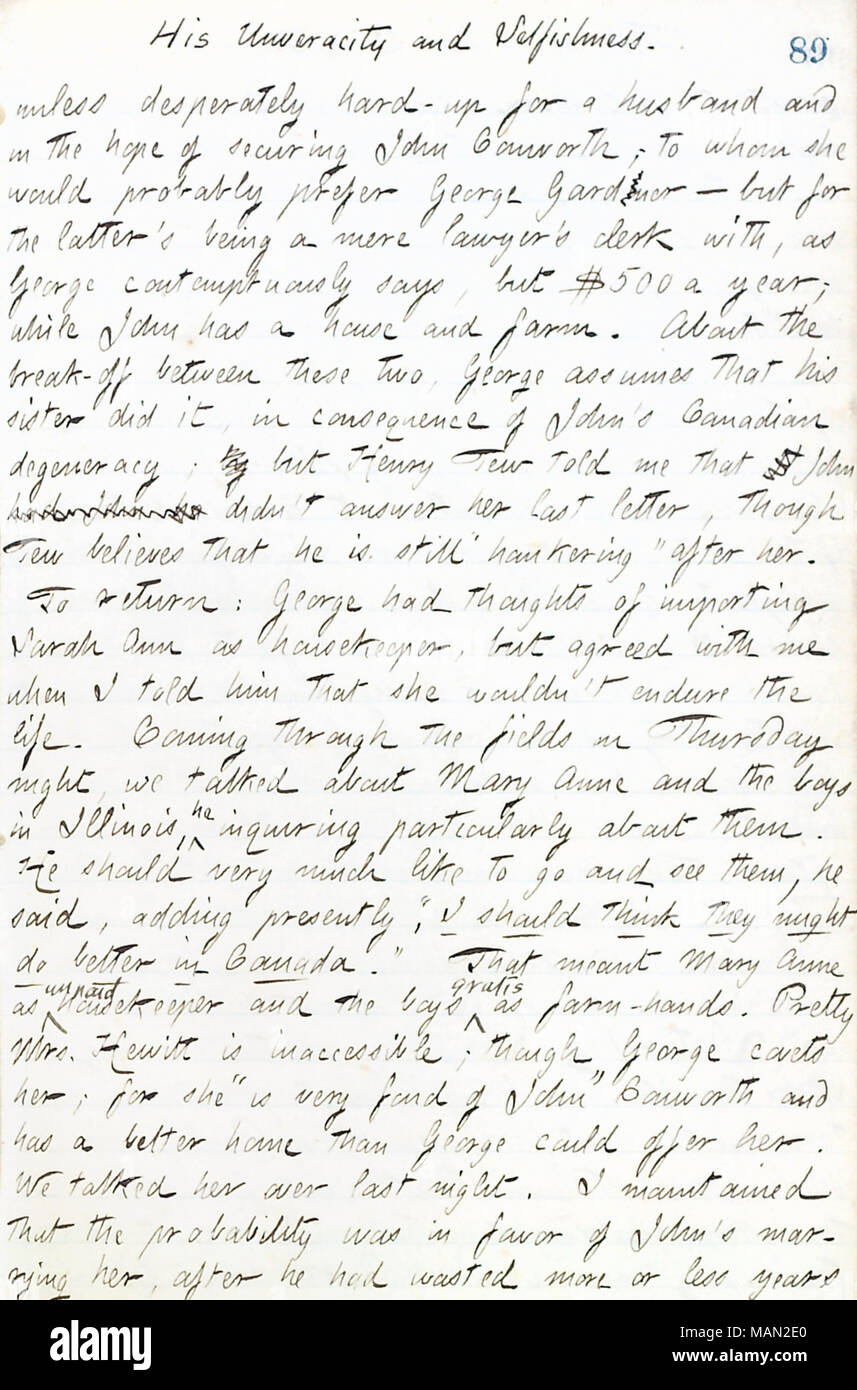 His Unveracity and Selfishness.
89
unless desperately hard-up for a husband and
in the hope of securing John Conworth; to whom she
would probably prefer George Gardner — but for
the latter's being a mere lawyer's clerk with, as
George contemptuously says, but $500 a year;
while John has a house and farm. About the
break-off between these two, George assumes that his
sister did it, in consequence of John's Canadian
degeneracy; but Henry Tew told me that John
didn't answer her last letter, though
Tew believes that he is still "hankering" after her.
To return: George had thoughts of importing
Sarah Ann as housekeeper, but agreed with me
when I told him that she wouldn't endure the
life. Coming through the fields on Thursday
night, we talked about Mary Anne and the boys
in Illinois, he inquiring particularly about them.
He should very much like to go and see them, he
said, adding presently, "I should think they might
do better in Canada." That meant Mary Anne
as unpaid housekeeper and the boys gratis as farm-hands. Pretty
Mrs. Hewitt is inaccessible; though George covets
her; for she "is very fond of John" Conworth and
has a better home than George could offer her.
We talked her over last night. I maintained
that the probability was in favor of John's mar-
rying her, after he had wasted more or less years
alamy
Image ID: MAN2E0
www.alamy.com